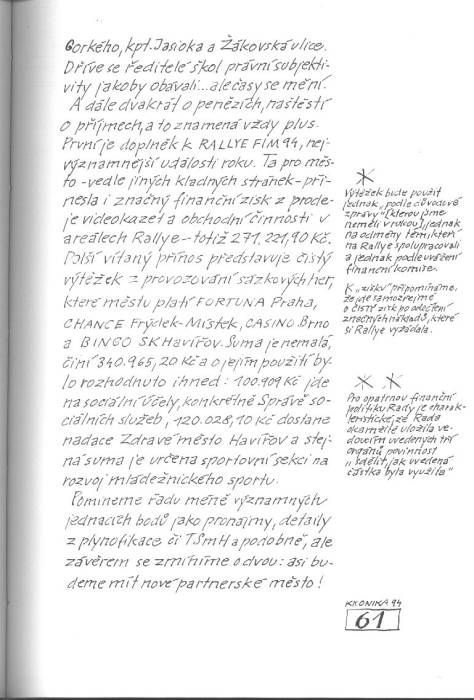 Gorkého, kpt. Jasioka a Žákovská ulice.
Dříve se ředitelé škol právní subjekti-
vity jakoby obávali...ale časy se mění.
A dále dvakrát o penězích, naštěstí
o příjmech, a to znamená vždy plus.
První je doplněk k RALLYE FIM 94, nej-
významnější události roku. Ta pro měs-
to - vedle jiných kladných stránek - při-
nesla i značný finanční zisk z prode-
je videokazet a obchodní činnosti v
areálech Rallye - totiž 271.221,90 Kč.
Další vítaný přínos představuje čistý
výtěžek z provozování sázkových her,
které městu platí FORTUNA Praha,
CHANCE Frýdek-Místek, CASINO Brno
a BINGO SK Havířov. Suma je nemalá,
činí 340.965,20 Kč a o jejím použití by-
lo rozhodnuto ihned: 100.909 Kč jde
na sociální účely, konkrétně Správě so-
ciálních služeb, 120.028,10 Kč dostane
nadace Zdravé město Havířov a stej-
ná suma je určena sportovní sekci na
rozvoj mládežnického sportu.
Pomineme řadu méně významných
jednacích bodů jako pronájmy, detaily
z plynofikace či TSmH a podobně, ale
závěrem se zmíníme o dvou: asi bu-
deme mít nové partnerské město!
*
Výtěžek bude použit
jednak „podle důvodové
zprávy" (kterou jsme
neměli v rukou), jednak
na odměny těm, kteří
na Rallye spolupracovali
a jednak podle uvážení
finanční komise.
K „zisku" připomínáme,
že jde samozřejmě
o ČISTÝ zisk po odečtení
značných nákladů, které
si Rallye vyžádala.
* *
Pro opatrnou finanční
politiku Rady je charak-
teristické, že Rada
okamžitě uložila ve-
doucím uvedených tří
orgánů povinnost
„sdělit, jak uvedená
částka byla využita"
KRONIKA 94
61